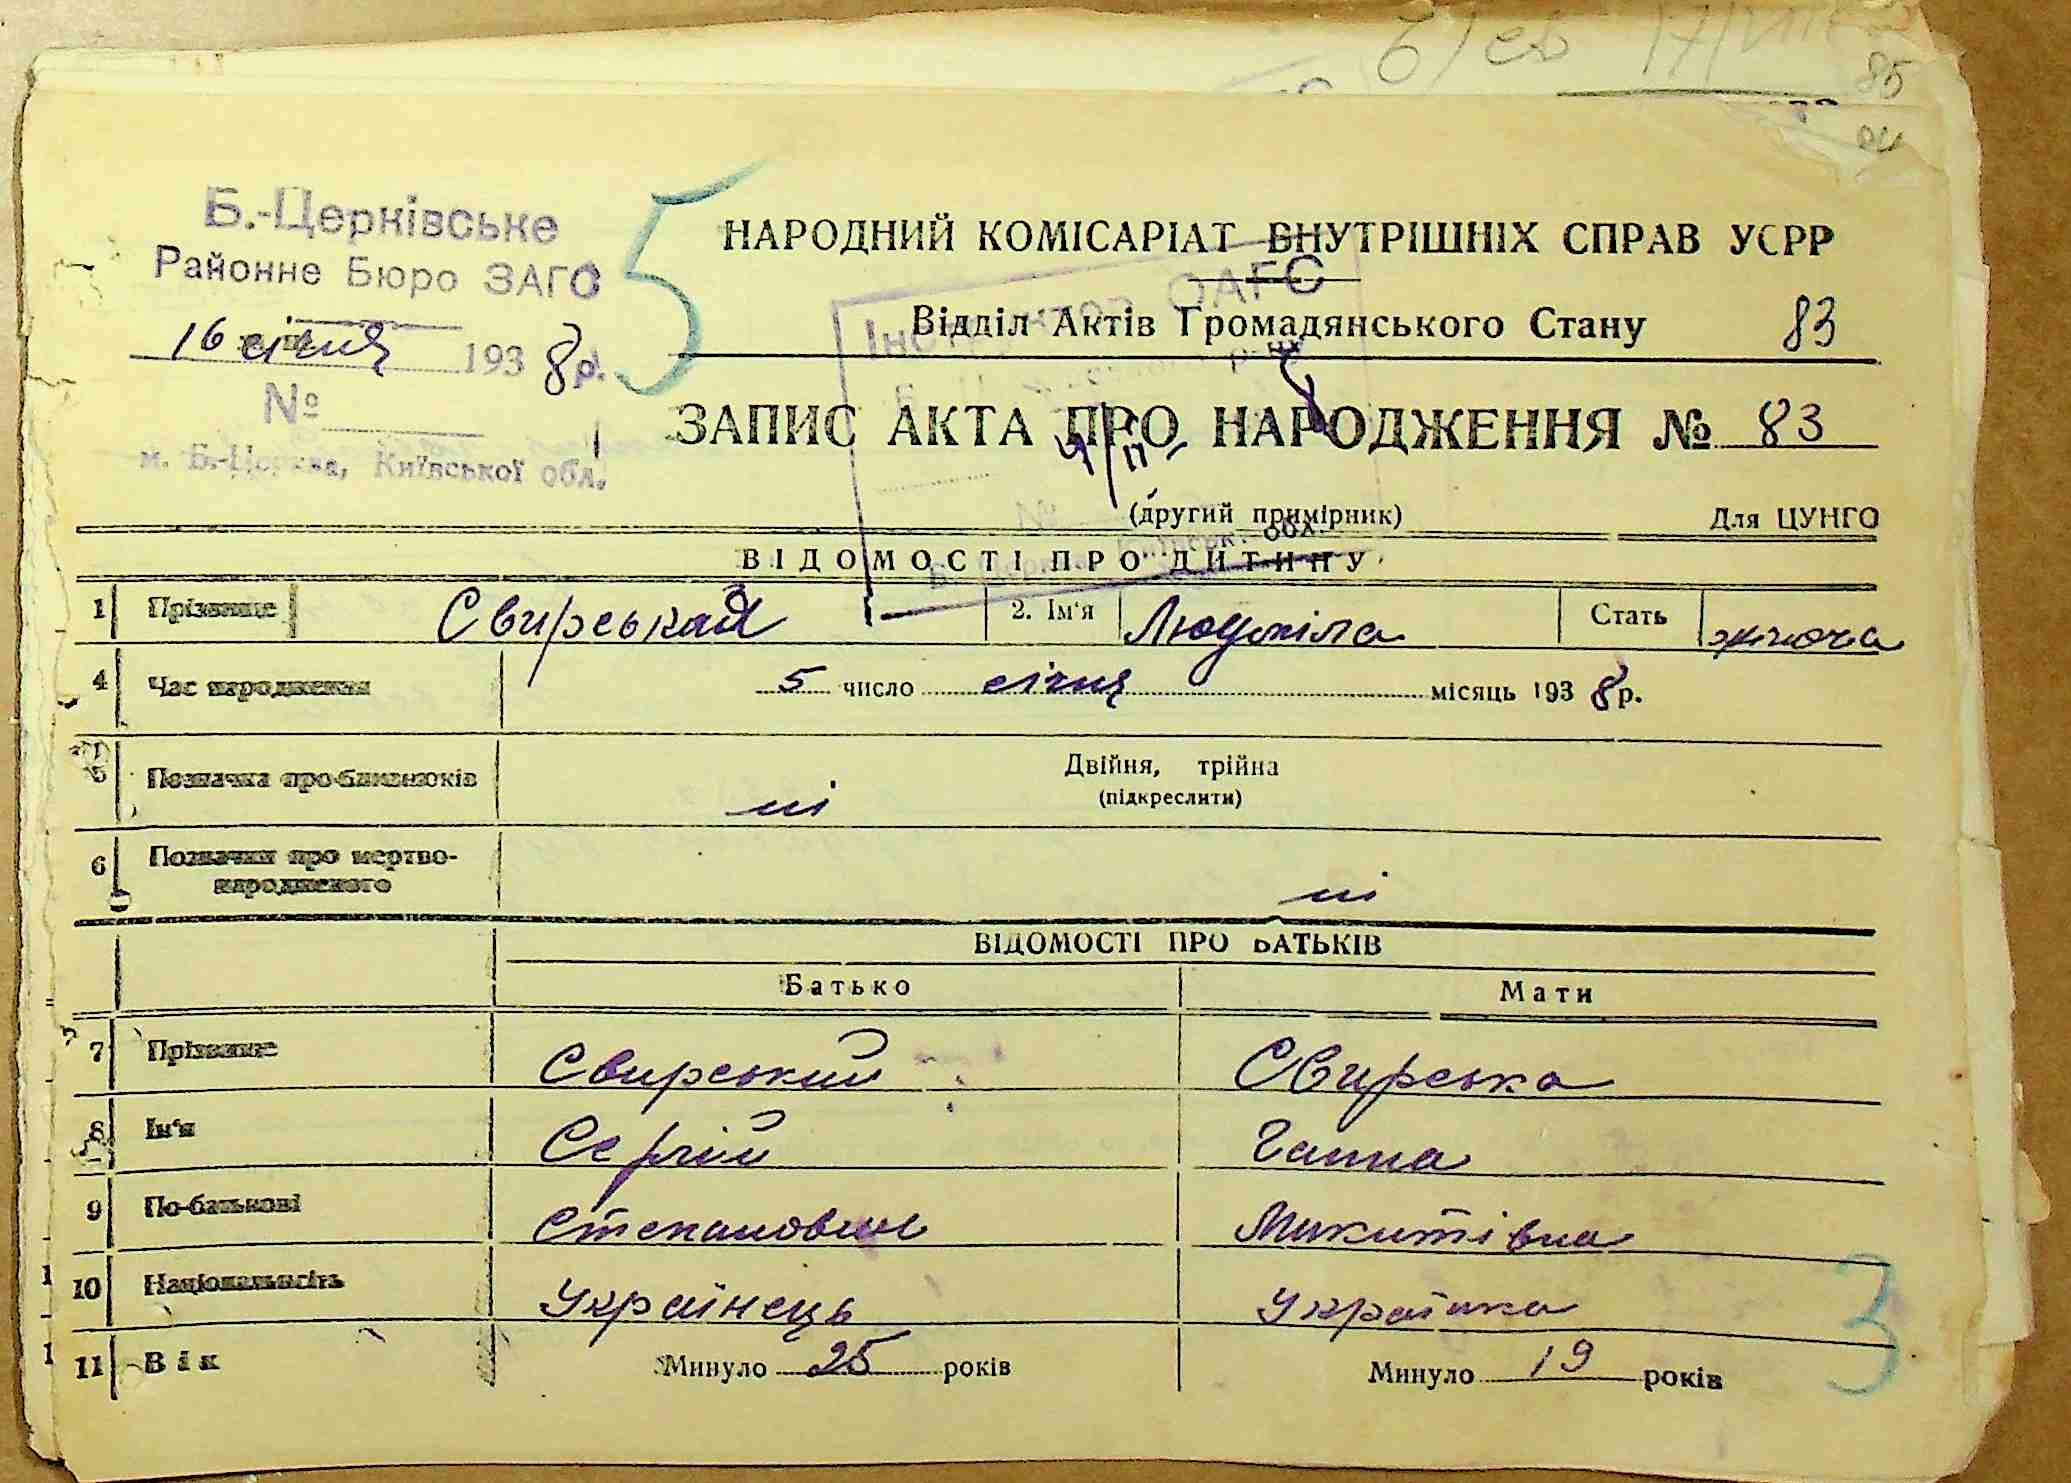 85
Б.-Церківське
Районне Бюро ЗАГС
16 січня 1938 р.
№
м. Б.-Церква, Київської обл.
5
НАРОДНИЙ КОМІСАРІАТ ВНУТРІШНІХ СПРАВ УСРР
ОАГС
Відділ Актів Громадянського Стану 83
ЗАПИС АКТА ПРО НАРОДЖЕННЯ № 83
(другий примірник) Для ЦУНГО
ВІДОМОСТІ ПРО ДИТИНУ
1 Прізвище Свирськая 2. Ім'я Людміла Стать жіноча
4 Час народження 5 число січня місяць 1938 р.
5 Позначка про близнюків ні Двійня, трійна
(підкреслити)
6 Позначки про мертво-
народженого ні
ВІДОМОСТІ ПРО БАТЬКІВ
Батько Мати
7 Прізвище Свирський Свирська
8 Ім'я Сергій Ганна
9 По-батькові Степанович Микитівна
10 Національність Українець Українка
11 Вік Минуло 25 років Минуло 19 років
3